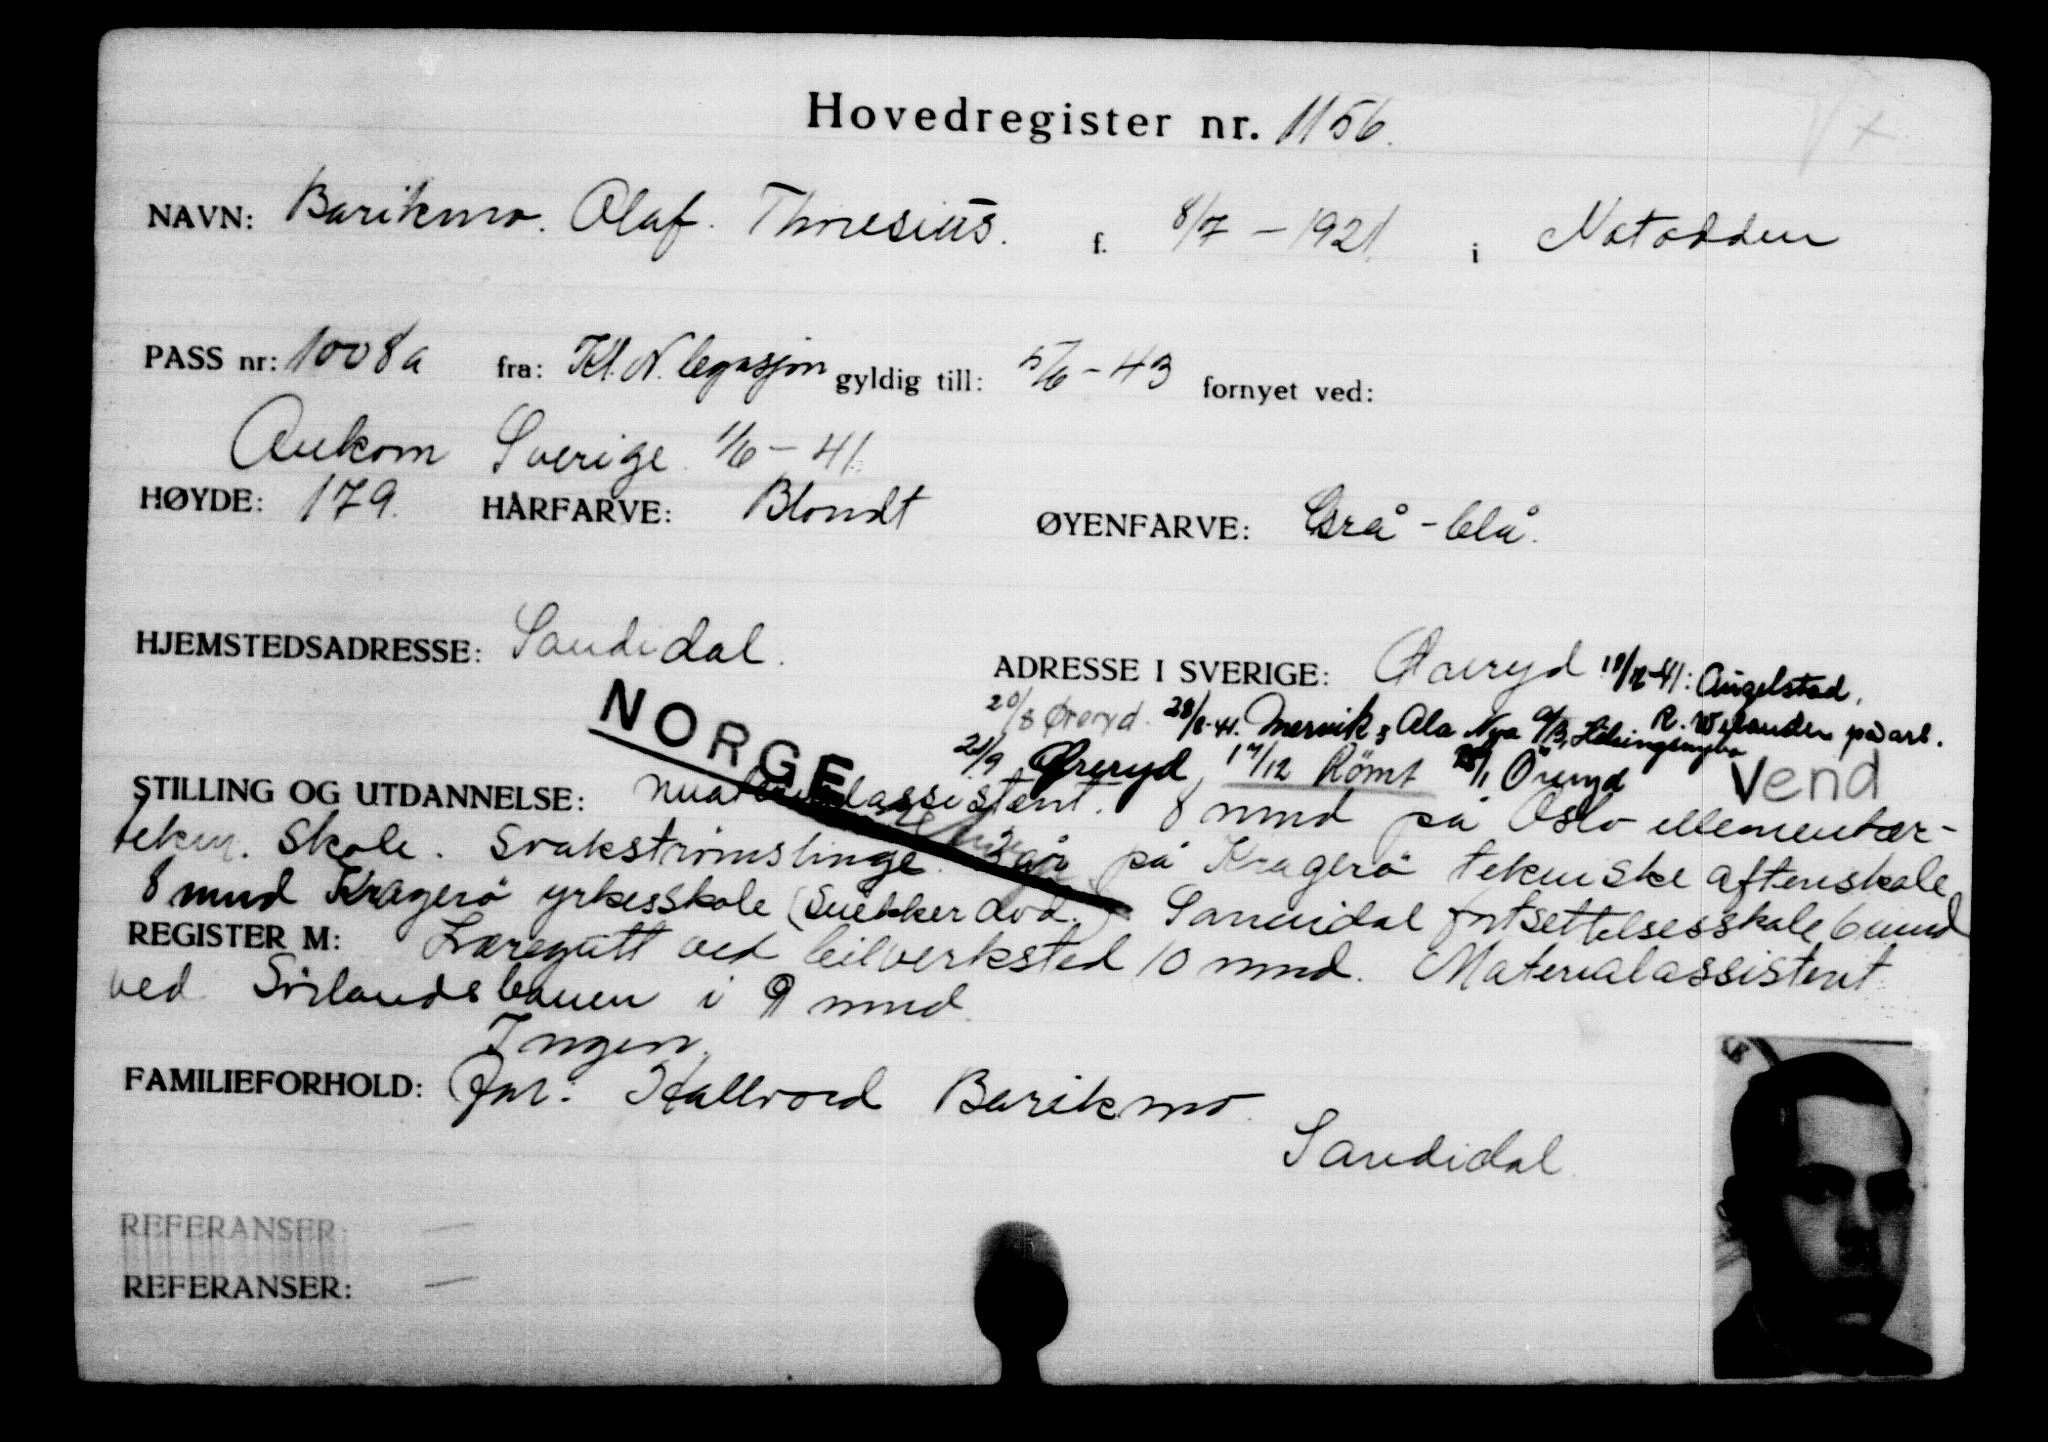 Hovedregister nr. 1156.
NAVN: Barikmo. Olaf. Thoresius. f. 8/7 - 1921 i Notodden
PASS nr: 1008a fra: Kl. N. legasjon gyldig till: 5/6 - 43 fornyet ved:
Ankom Sverige 1/6 - 41.
HØYDE: 179. HÅRFARVE: Blondt ØYENFARVE: Grå - blå.
HJEMSTEDSADRESSE: Sandidal. ADRESSE I SVERIGE: Øreryd 18/12-41: Angelstad,
20/8 Øreryd. 28/8-41. Mervik, Ala Nya R. Welander på arb.
NORGE 21/9 Øreryd, 17/12 Rømt 28/1 Öreryd Vend
STILLING OG UTDANNELSE: materialassistent. 8 mnd på Oslo ellementær-
tekn. Skole. Svakstrømslinge. på Kragerø tekniske aftenskole
8 mnd Kragerø yrkesskole (Snekker avd.) Sannidal fortsettelsesskole 6 mnd
REGISTER M: Læregutt ved bilverksted 10 mnd. Materialassistent
ved Sørlandsbanen i 9 mnd.
Ingen.
FAMILIEFORHOLD: Far: Hallvord Barikmo.
Sandidal.
REFERANSER: —
REFERANSER: —